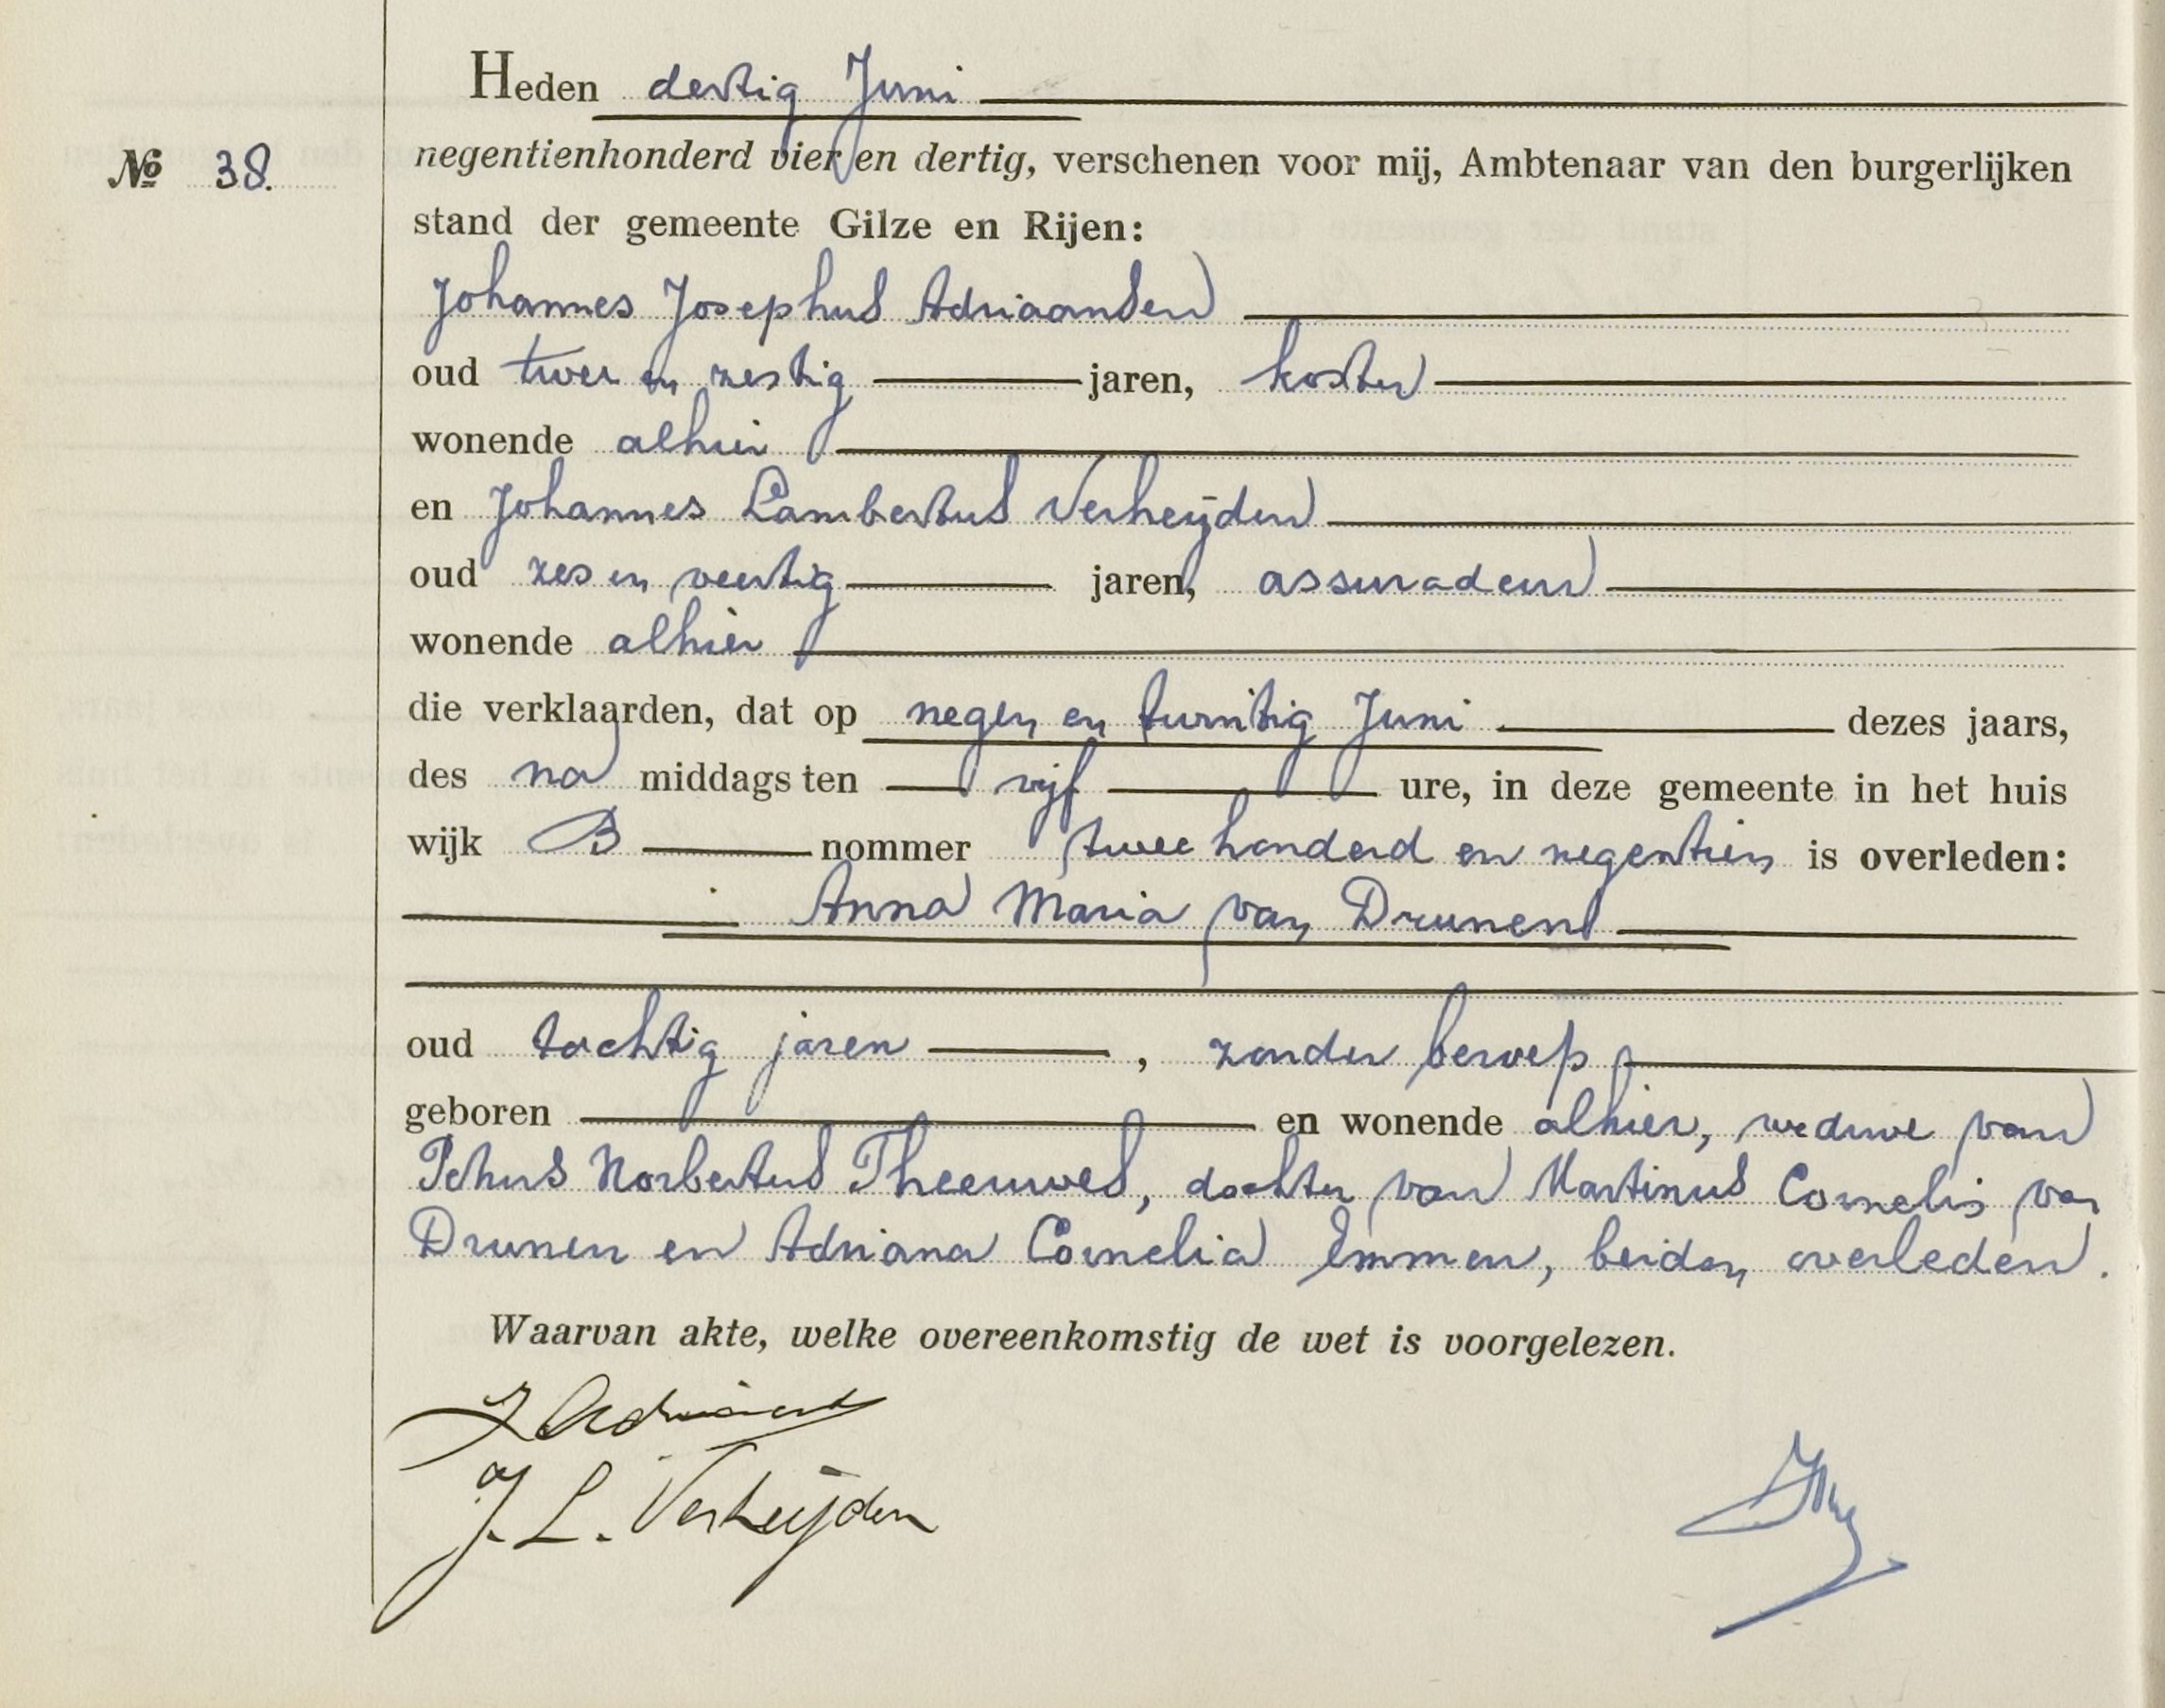 Heden dertig Juni
negentienhonderd vier en dertig, verschenen voor mij, Ambtenaar van den burgerlijken
№ 38.
stand der gemeente Gilze en Rijen:
Johannes Josephus Adriaansen
oud twee en zestig jaren, koster
wonende alhier
en Johannes Lambertus Verheijden
oud zes en veertig jaren, assuradeur
wonende alhier
die verklaarden, dat op negen en twintig Juni dezes jaars,
des na middags ten vijf ure, in deze gemeente in het huis
wijk B nommer twee honderd en negentien is overleden:
Anna Maria van Drunen
oud tachtig jaren, zonder beroep
geboren en wonende alhier, weduwe van
Petrus Norbertus Theeuwes, dochter van Martinus Cornelis van
Drunen en Adriana Cornelia Emmen, beiden overleden.
Waarvan akte, welke overeenkomstig de wet is voorgelezen.
J. L. Verheijden